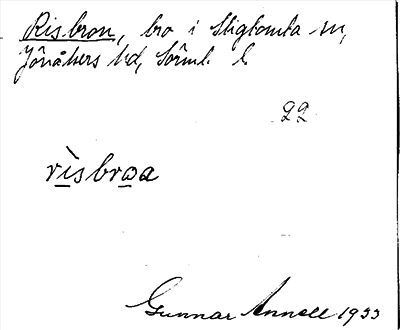 Risbron, bro i Stigtomta sn,
Jönåkers hd, Sörml. l.
22
rìsbroa
Gunnar Annell 1933